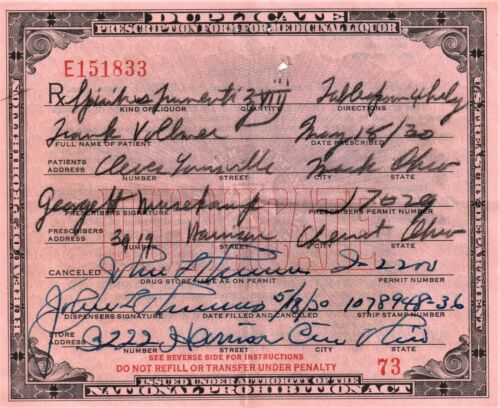 DUPLICATE
PRESCRIPTION FORM FOR MEDICINAL LIQUOR
E151833
Rx Spiritus Frumenti ℥VIII Tablespoon 4 hrly
KIND OF LIQUOR QUANTITY DIRECTIONS
Frank Vollmer May 18/30
FULL NAME OF PATIENT DATE PRESCRIBED
PATIENTS ADDRESS Cleves Ohio
NUMBER STREET CITY STATE
DUPLICATE
George H 17029
PRESCRIBERS SIGNATURE PRESCRIBERS PERMIT NUMBER
PRESCRIBERS ADDRESS 3019 Harrison Cheviot Ohio
NUMBER STREET CITY STATE
CANCELED John
DRUG STORE NAME AS ON PERMIT PERMIT NUMBER
John 5/18/30 1078948-36
DISPENSERS SIGNATURE DATE FILLED AND CANCELED STRIP STAMP NUMBER
STORE ADDRESS 3222 Harrison
NUMBER STREET CITY STATE
SEE REVERSE SIDE FOR INSTRUCTIONS
DO NOT REFILL OR TRANSFER UNDER PENALTY 73
ISSUED UNDER AUTHORITY OF THE
NATIONAL PROHIBITION ACT